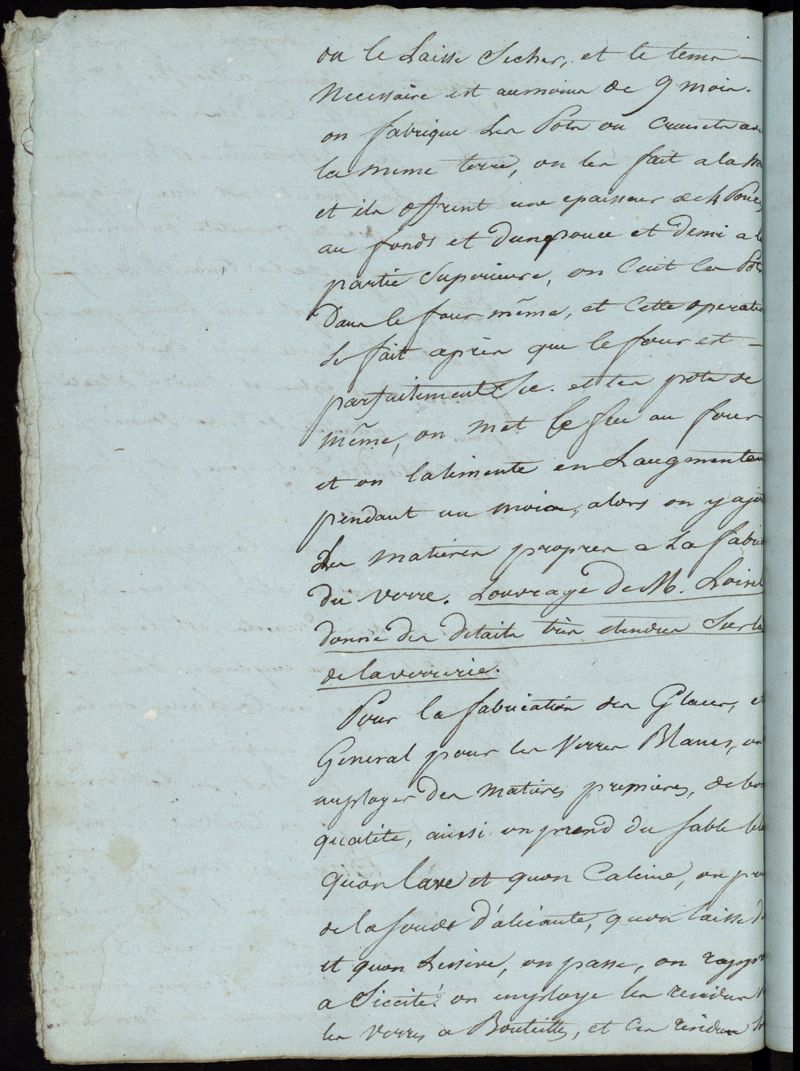 on le Laisse Secher, et le tems —
Necessaire est aumoins de 9 mois.
on fabrique les Pots ou Creusets av
la meme terre, on les fait a la m
et ils offrent une epaisseur de 4 Pouce
au fonds et dun pouce et demi a l
partie Superieure, on Cuit les Po
Dans le four même, et Cette operati
se fait après que le four est —
parfaitement Sec. et les pots de
même, on met le feu au four
et on lalimente en Laugmentan
pendant un mois, alors on y ajo
Les matières propres a La fabri
du verre. Louvrage de M. Loisel
donne des details très etendus Sur l
de la verrerie.
Pour la fabrication des Glaces, e
General pour les Verres Blancs, on
employer des matières premières, de bon
qualité, aussi on prend du sable bl
quon lave et quon Calcine, on pr
de la soude d'alicante, quon laisse
et quon Lessive, on passe, on rapp
a Siccité. on employe les residus
les verres a Bouteilles, et Ces residus